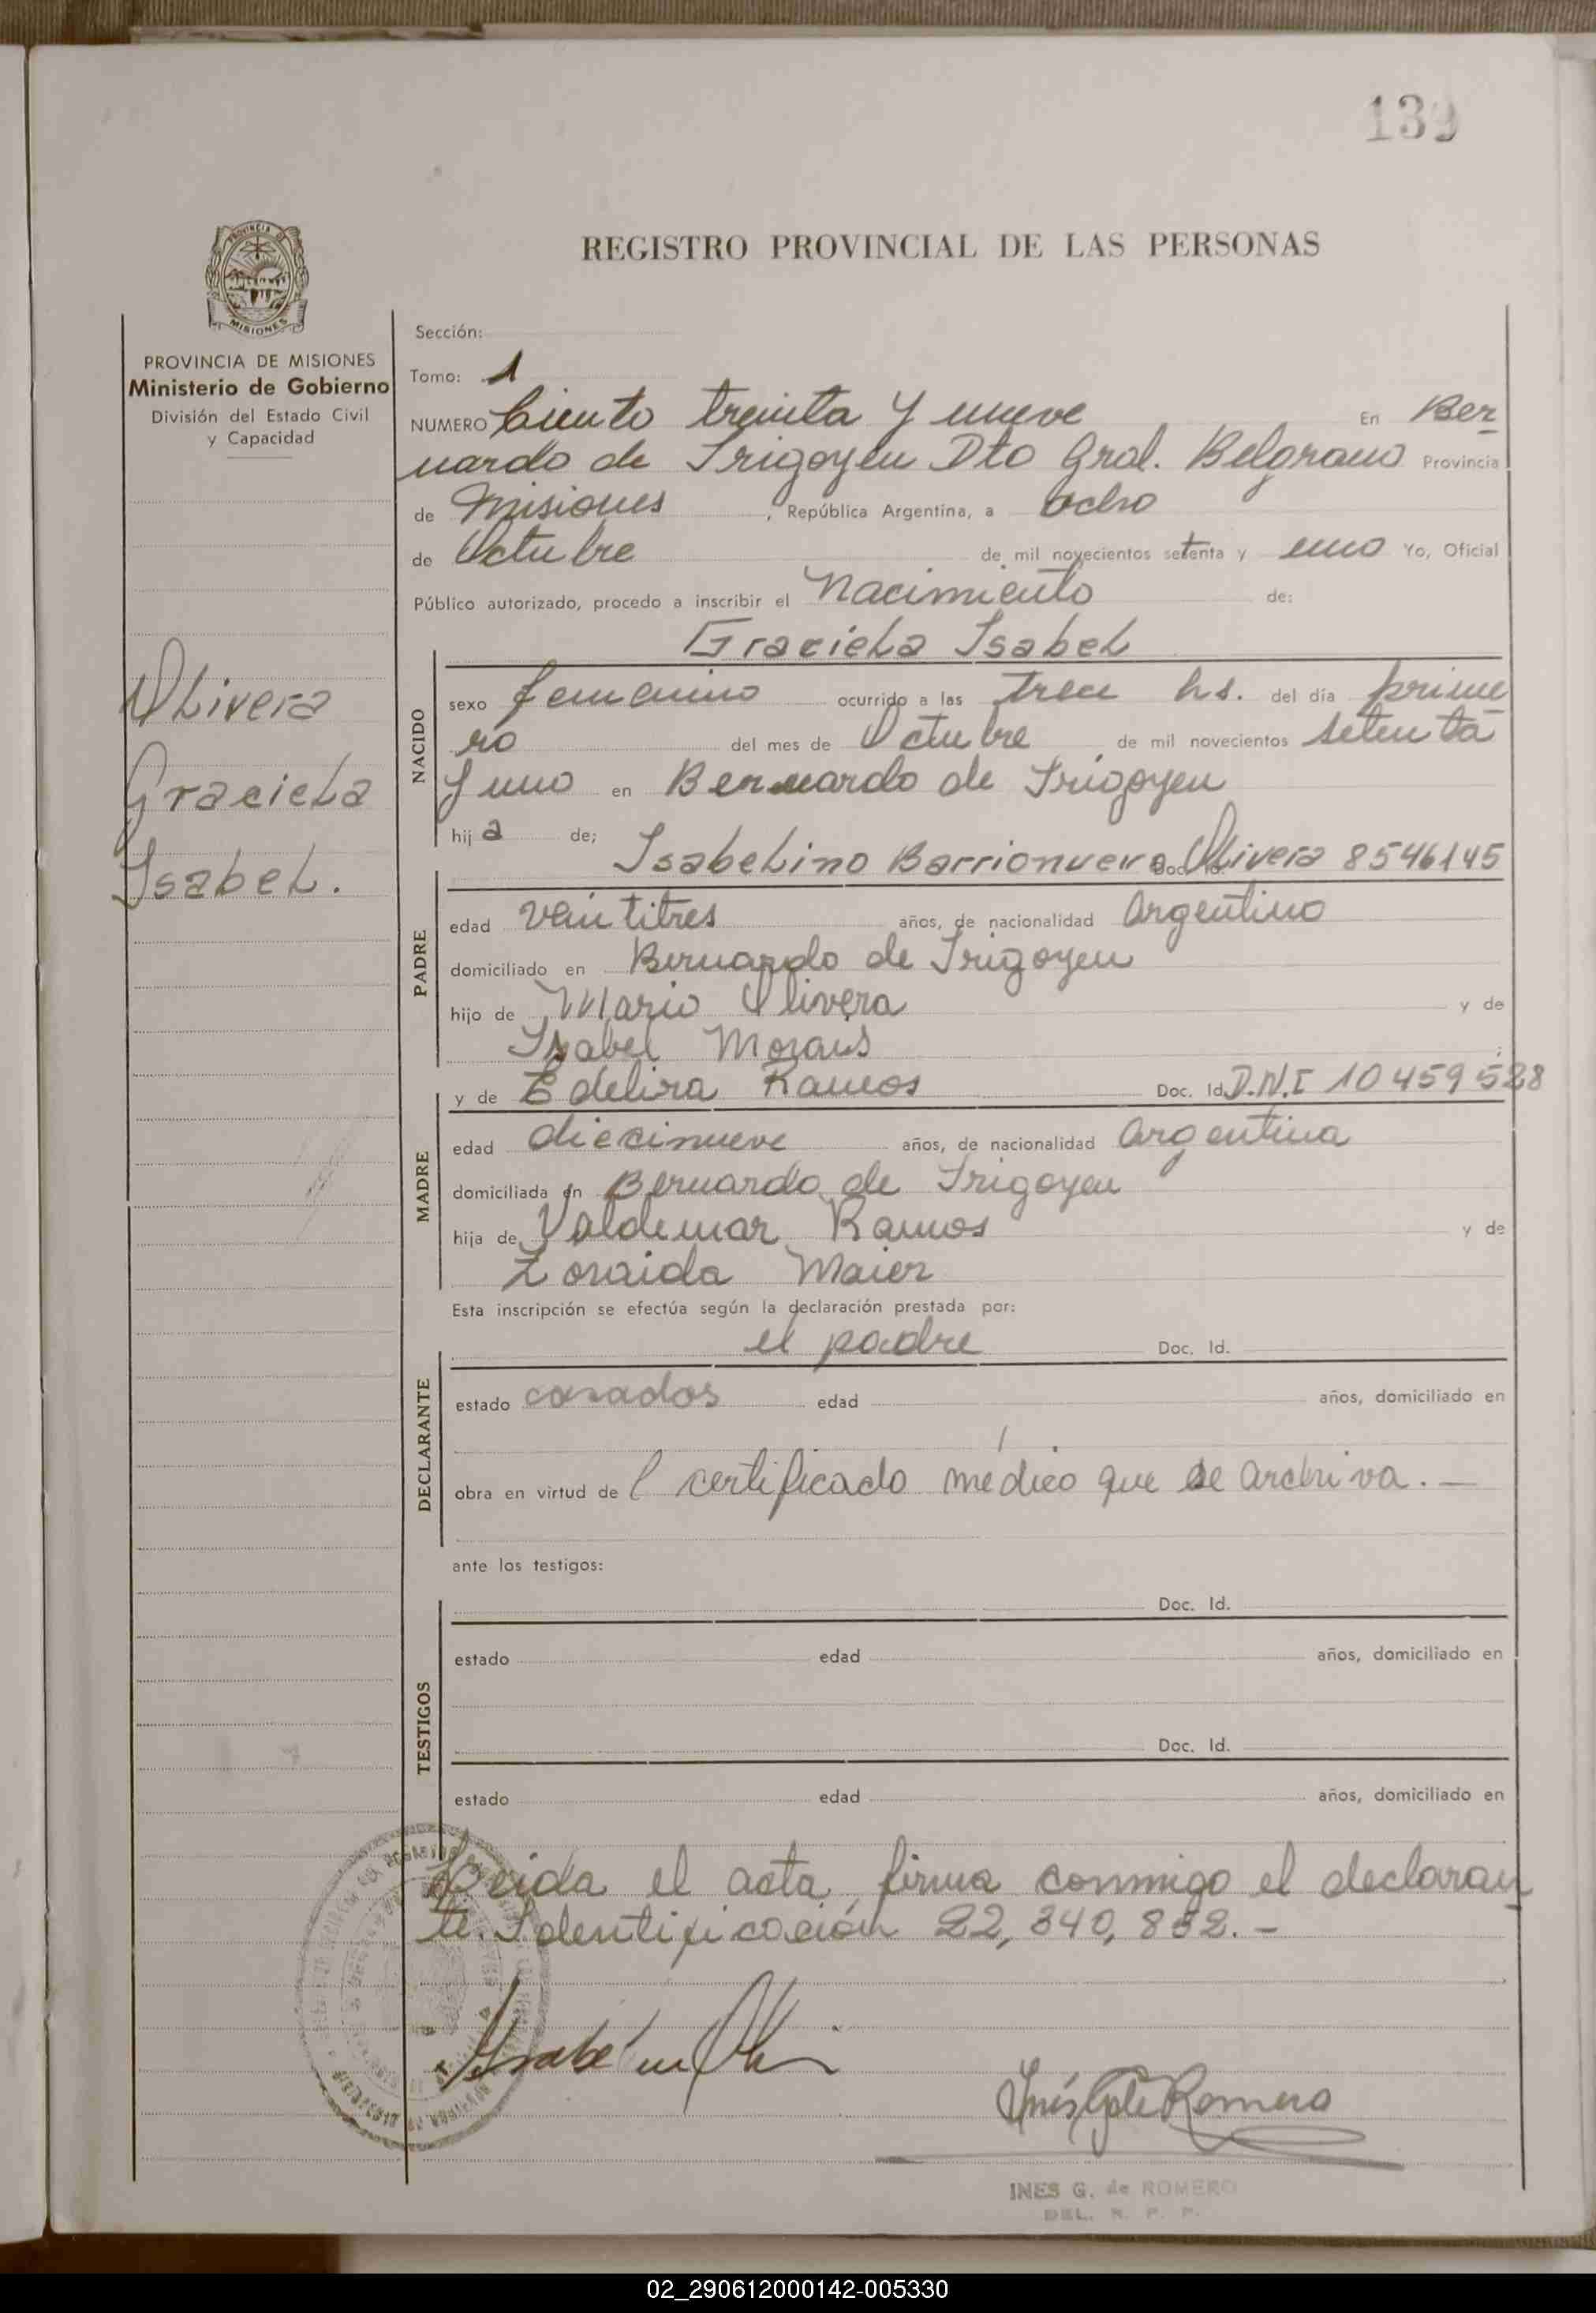 139
REGISTRO PROVINCIAL DE LAS PERSONAS
PROVINCIA DE
MISIONES
PROVINCIA DE MISIONES
Ministerio de Gobierno
División del Estado Civil
y Capacidad
Olivera
Graciela
Isabel.
Sección:
Tomo: 1
NUMERO Ciento treinta y nueve En Ber
nardo de Irigoyen Dto Gral. Belgrano Provincia
de Misiones, República Argentina, a ocho
de Octubre de mil novecientos setenta y uno Yo, Oficial
Público autorizado, procedo a inscribir el Nacimiento de:
Graciela Isabel
NACIDO
sexo femenino ocurrido a las trece hs. del día prime
ro del mes de Octubre de mil novecientos setenta
y uno en Bernardo de Irigoyen
hija de; Isabelino Barrionuevo Olivera 8546145
PADRE
edad veintitres años, de nacionalidad Argentino
domiciliado en Bernardo de Irigoyen
hijo de Mario Olivera y de
Isabel Morais
y de Edelira Ramos Doc. Id. D.N.I 10459528
MADRE
edad diecinueve años, de nacionalidad Argentina
domiciliada en Bernardo de Irigoyen
hija de Valdemar Ramos y de
Zoraida Maier
Esta inscripción se efectúa según la declaración prestada por:
el padre Doc. Id.
DECLARANTE
estado casados edad años, domiciliado en
obra en virtud del certificado médico que se archiva. —
ante los testigos:
TESTIGOS
Doc. Id.
estado edad años, domiciliado en
Doc. Id.
estado edad años, domiciliado en
Leida el acta firma conmigo el declaran
te. Identificación 22,340,832. -
INES G. de ROMERO
DEL. R. P. P.
02_290612000142-005330